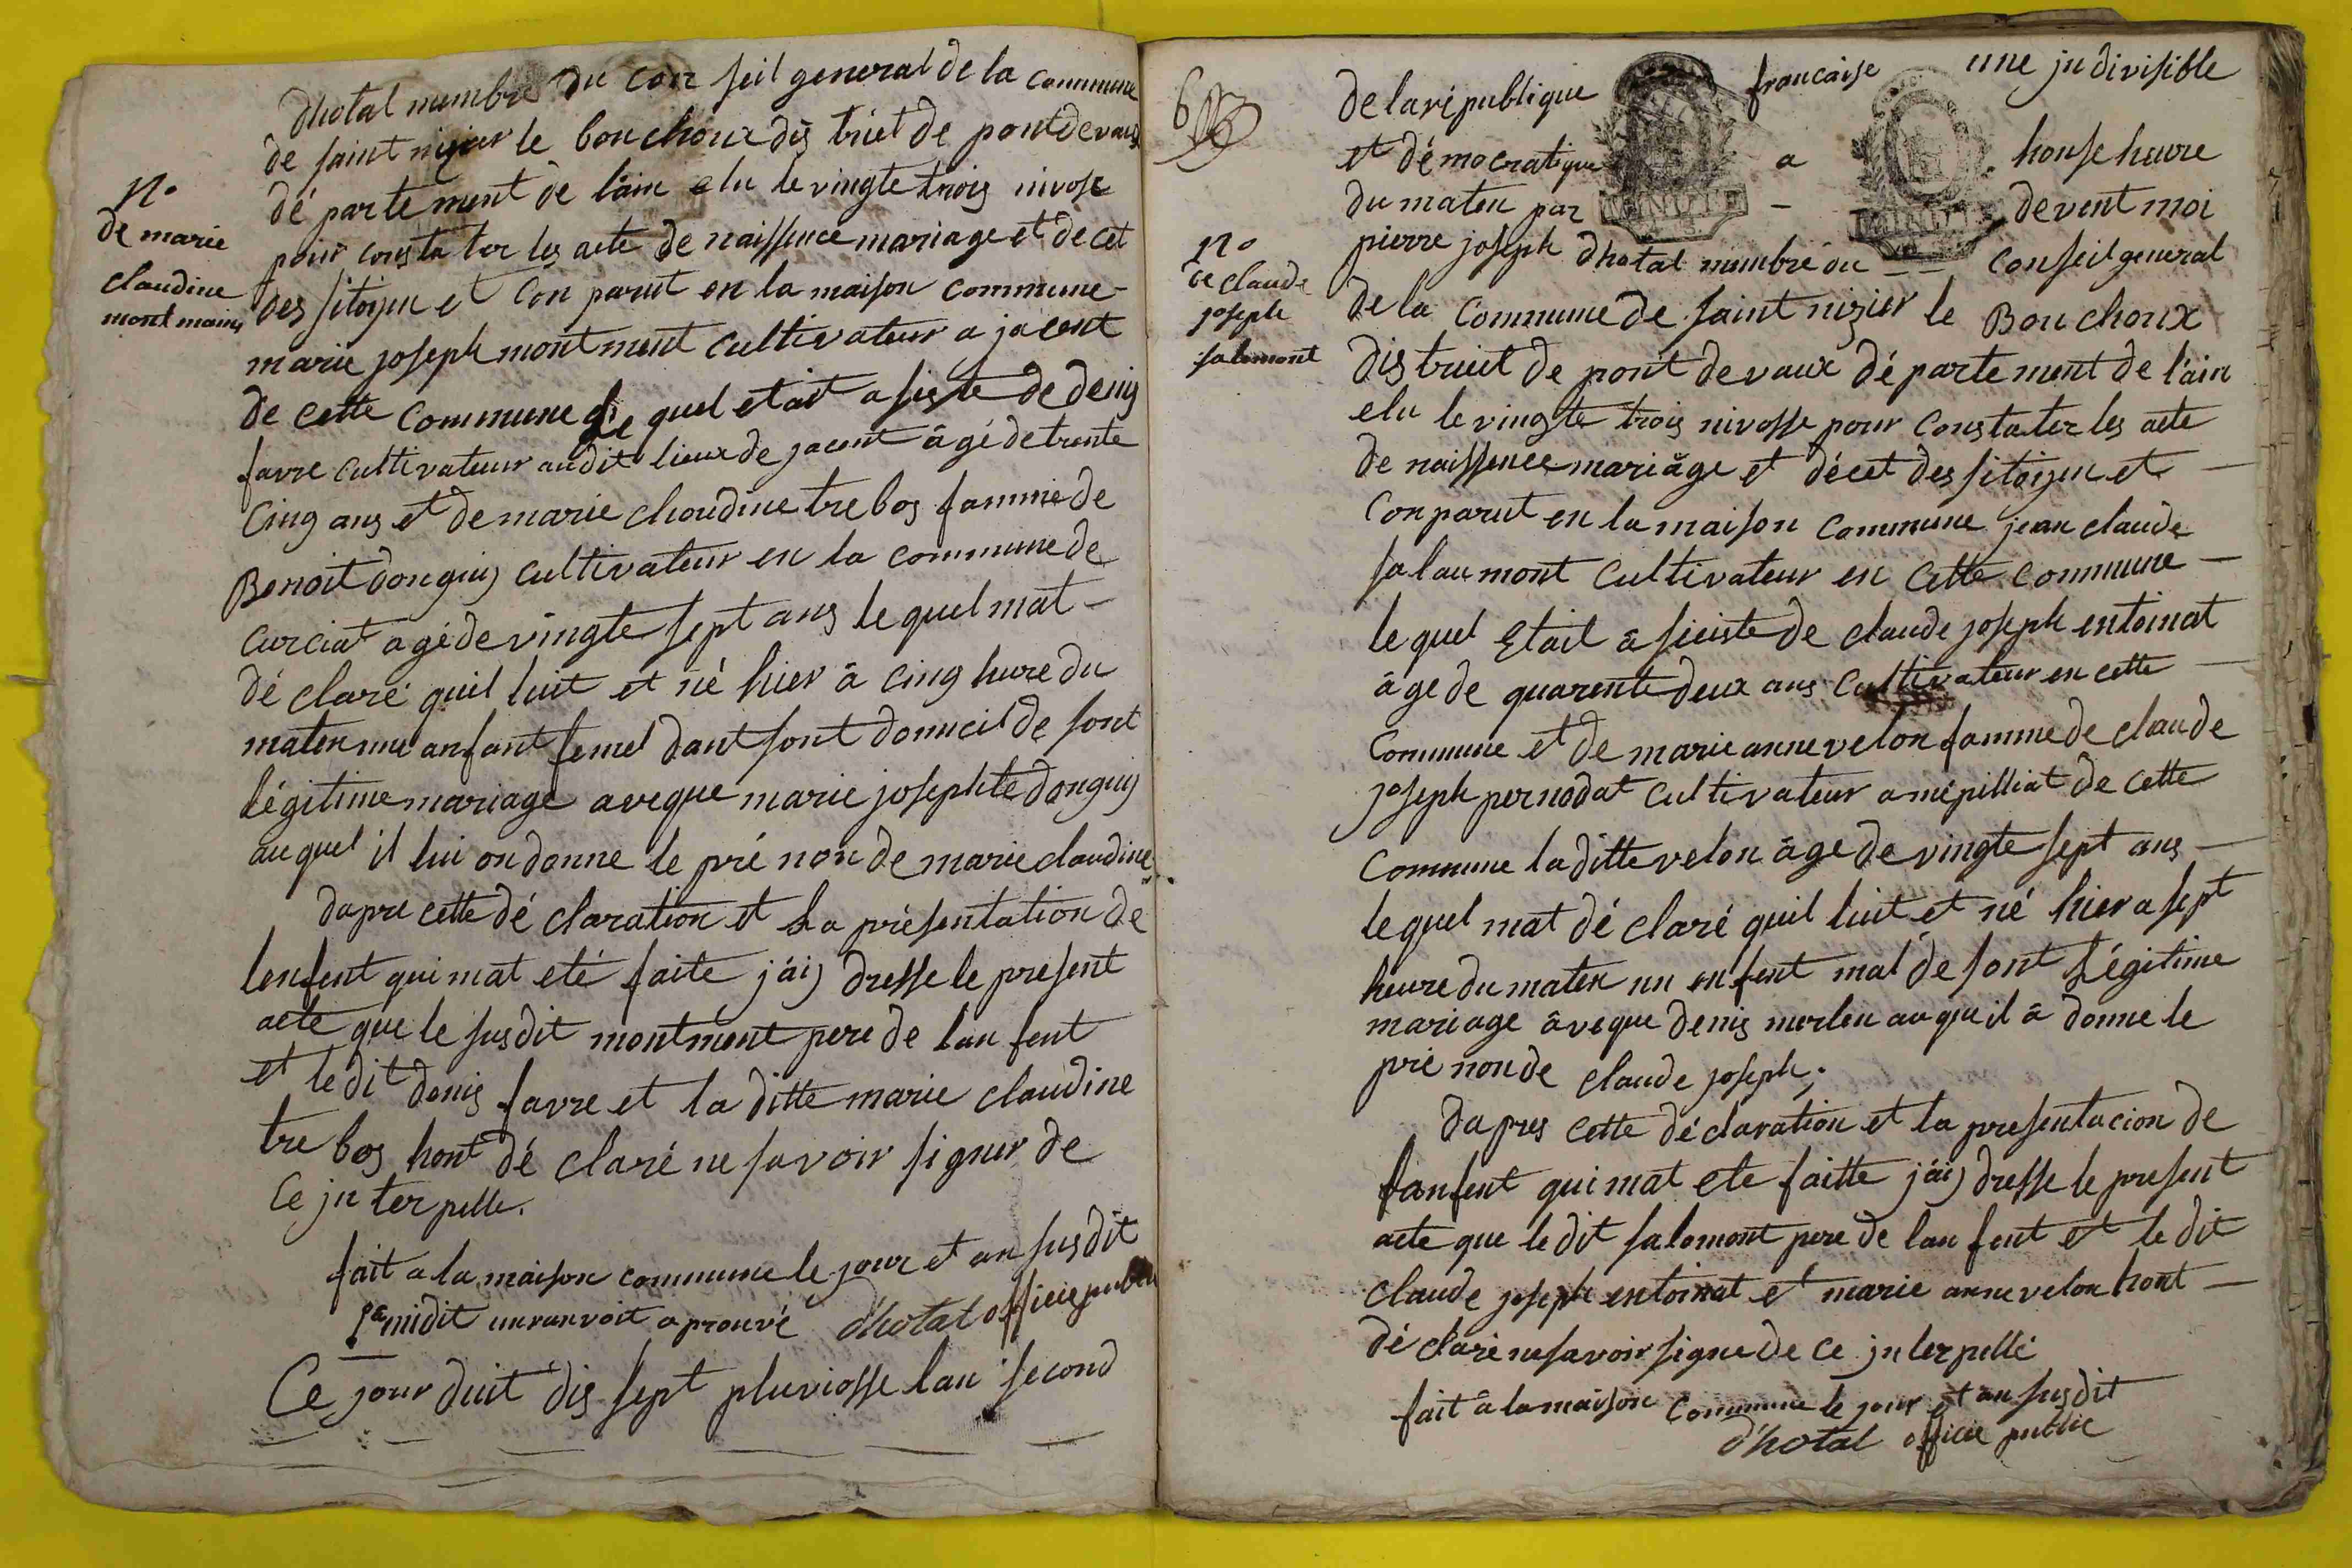 dhotal membre du Con seil general de la commune
de saint nizier le bouchoux dis triet de pont de vaux
dé parte ment de lain elu le vingte trois nivose
pour consta ter les acte de naissence mariage et de cet
des sitoyen et Con parut en la maison commune -
marie joseph montment cultivateur a jacent
de cette commune le quel etait a siste de denis
favre cultivateur au dit lieux de jacent âgé de trente
Cinq ans et de marie choudine trebos famme de
Benoit donguy cultivateur en la commune de
curciat agé de vingte sept ans le quel mat -
dé claré quil luit et né hier â cinq hure du
maten une anfant femel dant sont domicil de sont
légitime mariage aveque marie josephte donguy
au quel il lui on donne le pré non de marie claudine
dapre cette dé claration et La présentation de
lenfent qui mat eté faite j'aiy dresse le present
acte que le susdit montment pere de lan fent
et le dit denis favre et la ditte marie claudine
tre bos hont dé claré ne savoir signer de
Ce jn ter pelle.
fait a la maison commune le jour et an susdit
midit un ranvoit a prouvé d'hotal officie public
Ce jour duit dis sept pluviosse lan second
n°
de marie
claudine
montmain
6
de la république francaise une jndivisible
et démocratique a honse heure
du maten par - devent moi
pierre joseph dhotal membre du -- Conseil general
de la Commune de saint nizier le Bouchoux
dis triet de pont de vaux dé parte ment de l'ain
elu le vingte trois nivosse pour Constater les acte
de naissence mariâge et décet des sitoyen et -
Con parut en la maison Commune jean claude
salaumont Cultivateur en Cette Commune -
le quel Etail â sieiste de claude joseph entoinat
âge de quarente deux ans Cultivateur en cette -
Commune et de marie anne velon famme de claude
joseph pernodat Cultivateur a mépilliat de cette
Commune la ditte velon âge de vingte sept ans -
le quel mat dé claré quil luit et né hier a sept
heure du maten un en fent mal de sont Légitime
mariage âveque denis merlen au que il â donne le
pré non de claude joseph.
dapres cette déclaration et la presentacion de
lanfent qui mat ete faitte j'aiy dresse le present
acte que le dit salomont pere de lan fent et le dit
claude joseph entoinat et marie anne velon hont -
dé claré ne savoir signe de ce jnterpellé
fait â la maison Commune le jour et an susdit
d'hotal officie public
n°
de claude
joseph
salomont